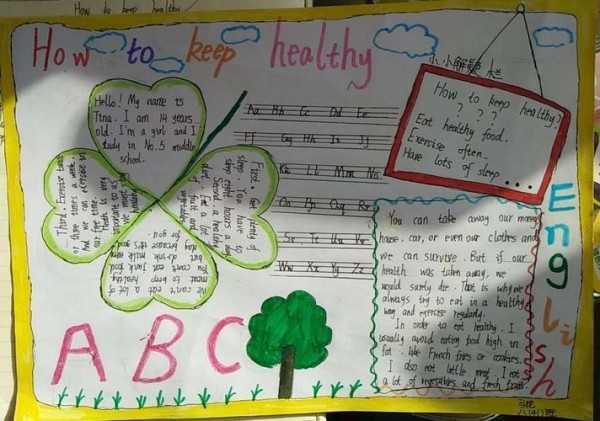 How to keep healthy
How to keep healthy
Hello! My name is
Tina. I am 14 years
old. I'm a girl and I
study in No.5 middle
school.
First. Get plenty of
sleep. You have to
sleep eight hours a day.
Second. a healthy
diet. Eat a lot
of fruit and
vegetables
We can't eat a lot of
meat to keep healthy
You can't eat junk food
but drink
milk because it's good
for you.
Third. Exercise two
or three times a week.
And we can exercise in
our free time.
Health is very
important to us
Aa Bb Cc Dd Ee
Ff Gg Hh Ii Jj
Kk Ll Mm Nn
Oo Pp Qq Rr
Ss Tt Uu Vv
Ww Xx Yy Zz
How to keep healthy?
? ? ?
Eat healthy food.
Exercise often.
Have lots of sleep
...
You can take away our money
house. car, or even our clothes and
we can survive. But if our
health was taken away, we
would surely die. That is why we
always try to eat in a healthy
way and exercise regularly.
In order to eat healthy. I
usually avoid eating food high in
fat. like French fries or cookies.
I also eat little meat. I eat
a lot of vegetables and fresh fruit.
English
A B C